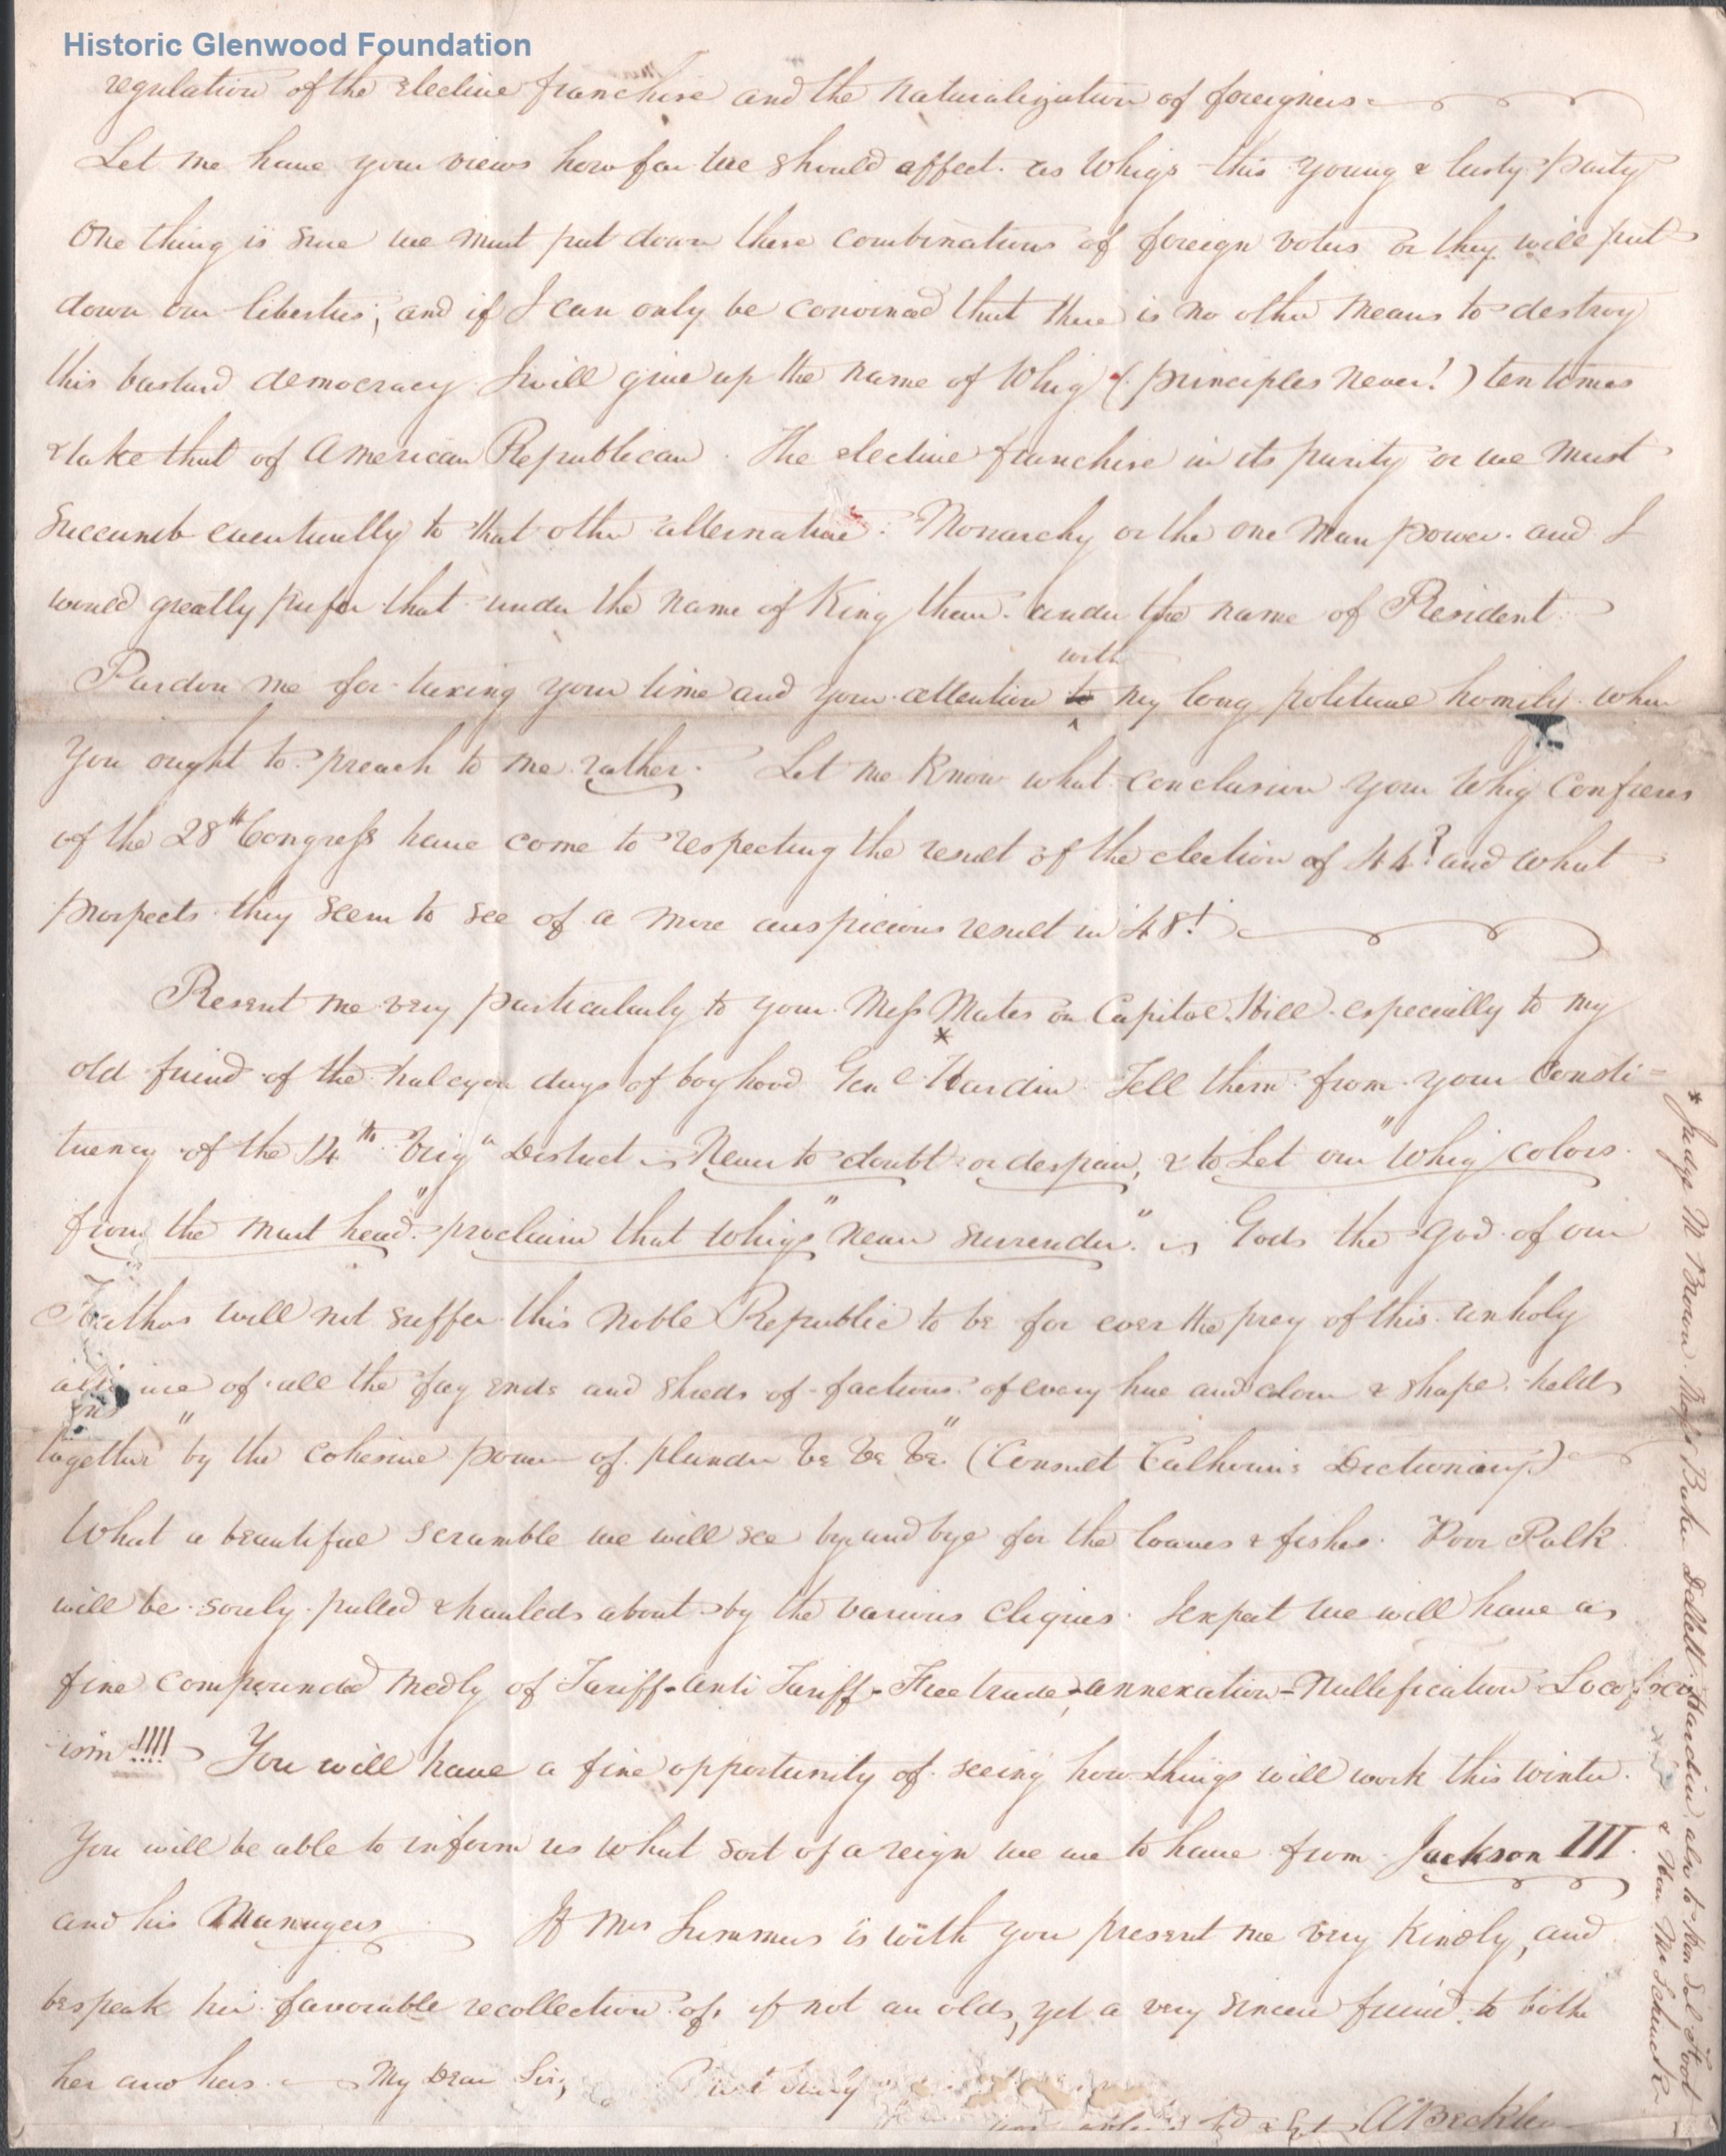 Historic Glenwood Foundation
regulation of the elective franchise and the naturalization of foreigners.
Let me have your views how far we should affect as Whigs this young & lusty party
One thing is sure we must put down these combinations of foreign votes or they will put
down our liberties; and if I can only be convinced that there is no other means to destroy
this bastard democracy I will give up the name of Whig (principles never!) ten times
& take that of American Republican. The elective franchise in its purity or we must
succumb eventually to that other alternative: Monarchy or the one man power. and I
would greatly prefer that under the name of King than under the name of President.
with
Pardon me for taxing your time and your attention to my long political homily when
you ought to preach to me rather. Let me know what conclusion your Whig Confreres
of the 28th Congress have come to respecting the result of the election of 44? and what
prospects they seem to see of a more auspicious result in '48!
Present me very particularly to your Mess Mates on Capitol Hill especially to my
old friend of the halcyon days of boyhood Genl * Hardin. Tell them from your Consti=
tuency of the 14th Virga District Never to doubt or despair, & to let our "Whig colors
from the mast head" proclaim that Whigs "never surrender." God the God of our
Fathers will not suffer this noble Republic to be for ever the prey of this unholy
alliance of all the fag ends and shreds of factions of every hue and colour & shape. held
together "by the cohesive power of plunder &c &c &c" (Consult Calhoun's Dictionary)
What a beautiful scramble we will see by and bye for the loaves & fishes. Poor Polk
will be sorely pulled & hauled about by the various cliques. I expect we will have a
fine compounded medly of Tariff-anti Tariff-Free trade, annexation-Nullification Loco foco
-ism!!!! You will have a fine opportunity of seeing how things will work this winter.
You will be able to inform us what sort of a reign we are to have from Jackson III.
and his Managers If Mrs Summers is with you present me very kindly, and
bespeak her favorable recollection of, if not an old, yet a very sincere friend to both
her and hers. My Dear Sir,
A Beckley
* Judge M Brown Baker Dellett Hardin also to Hon Sol Foot
& Hon Mr Schenck